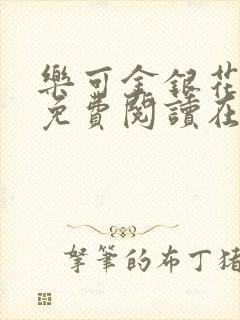 樂可金銀花
免費閱讀在
拏筆的布丁豬